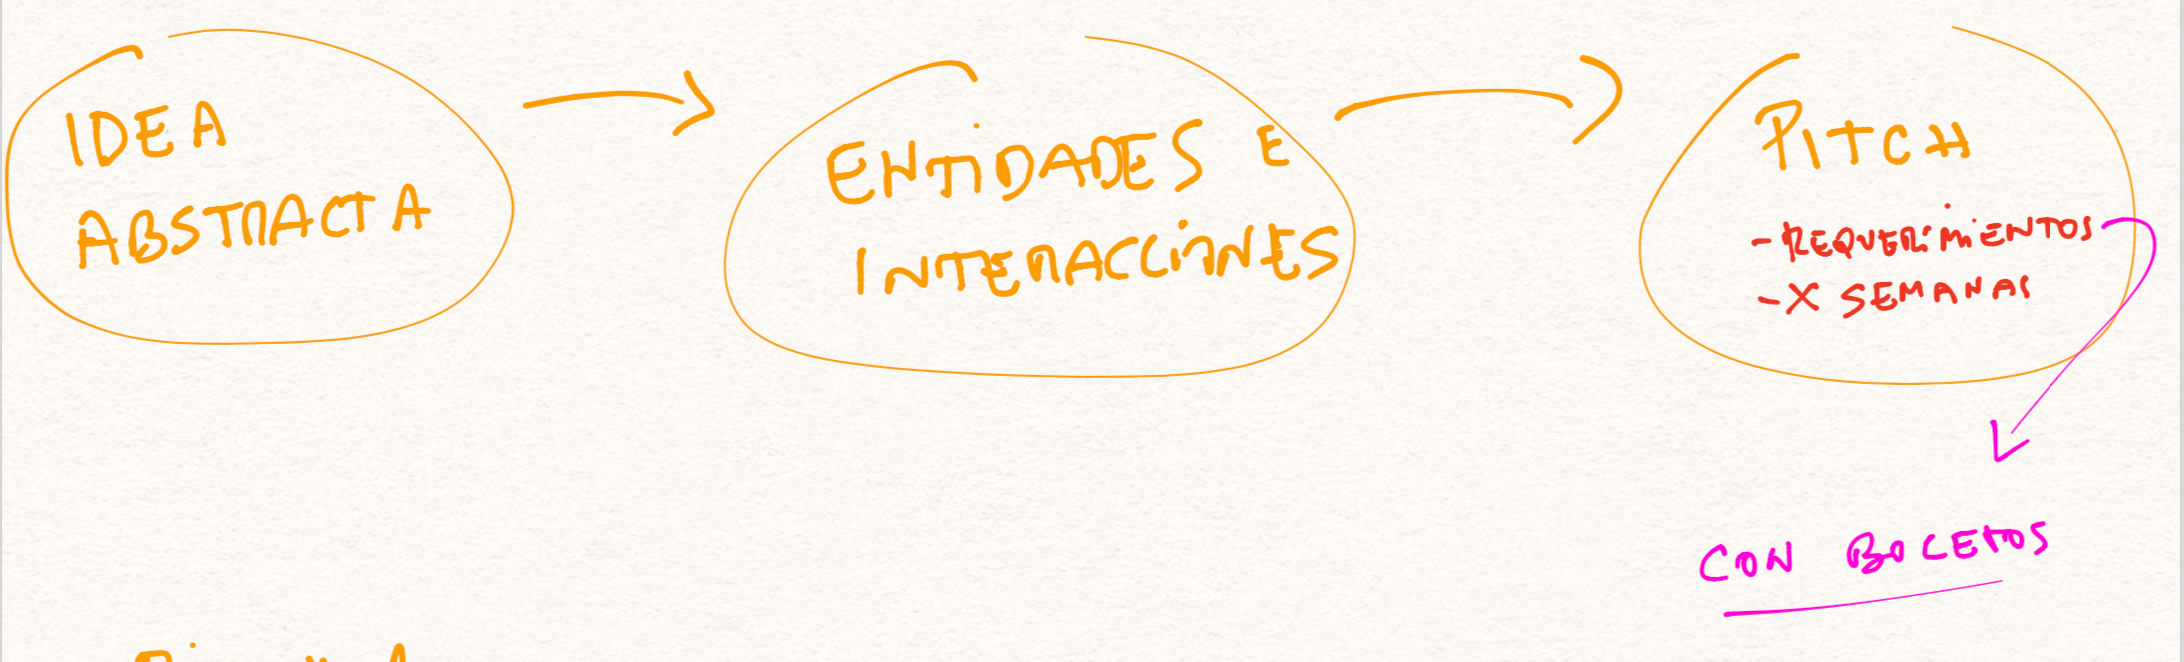 IDEA
ABSTRACTA
ENTIDADES E
INTERACCIONES
PITCH
- REQUERIMIENTOS
- X SEMANAS
CON BOCETOS